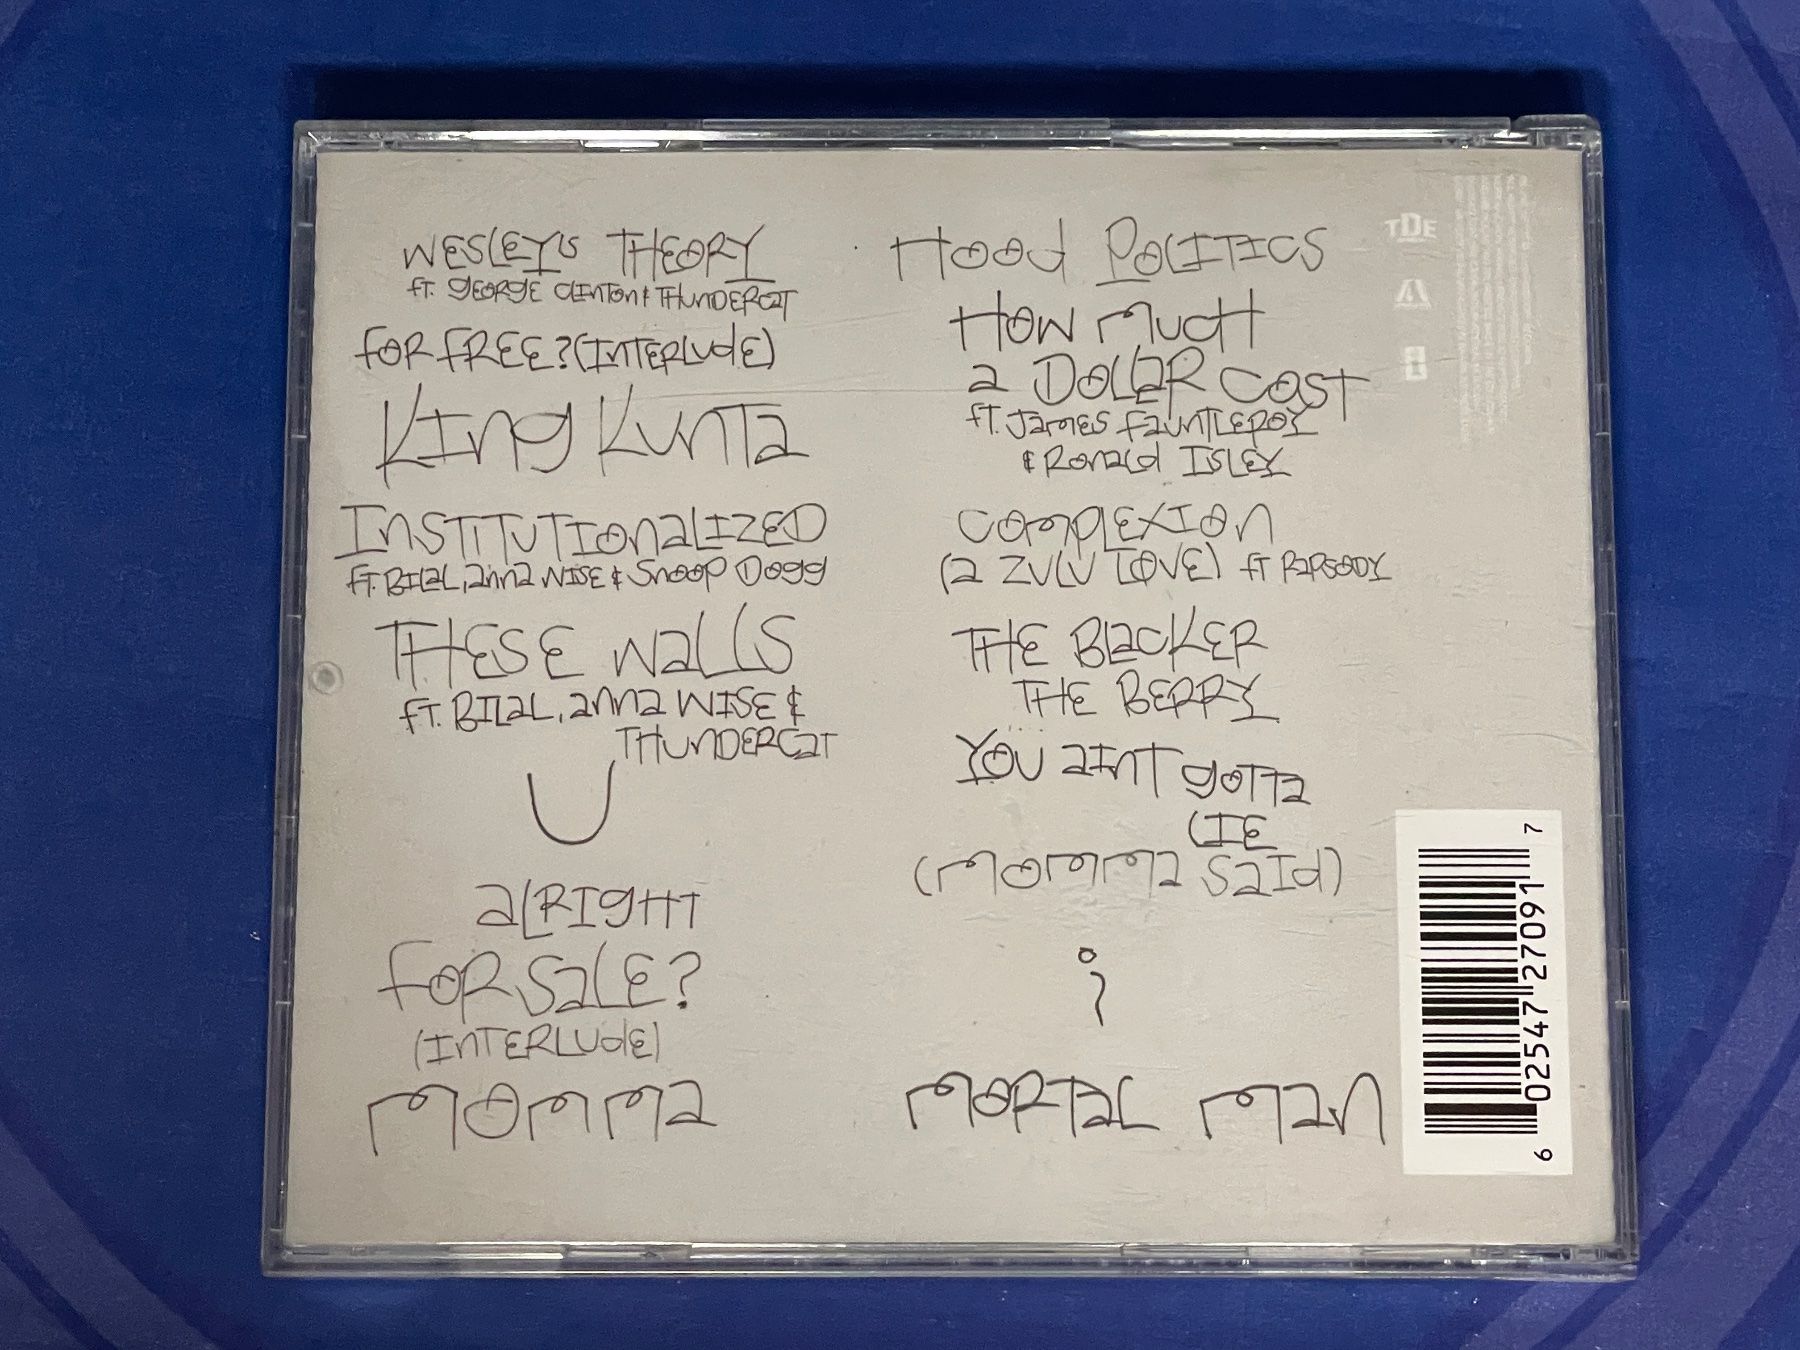 WESLEY'S THEORY
FT. GEORGE CLINTON & THUNDERCAT
FOR FREE? (INTERLUDE)
KING KUNTA
INSTITUTIONALIZED
FT. BILAL, ANNA WISE & SNOOP DOGG
THESE WALLS
FT. BILAL, ANNA WISE &
THUNDERCAT
U
ALRIGHT
FOR SALE?
(INTERLUDE)
MOMMA
HOOD POLITICS
HOW MUCH
A DOLLAR COST
FT. JAMES FAUNTLEROY
& RONALD ISLEY
COMPLEXION
(A ZULU LOVE) FT RAPSODY
THE BLACKER
THE BERRY
YOU AINT GOTTA
LIE
(MOMMA SAID)
i
MORTAL MAN
TDE
6 02547 27091 7